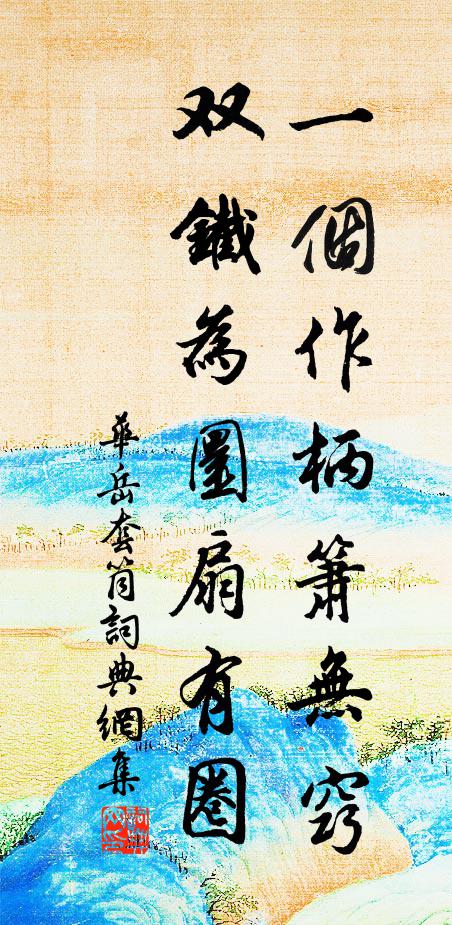 一個作柄簫無竅
双鐵為圍扇有圈
華岳套筒詞典網集